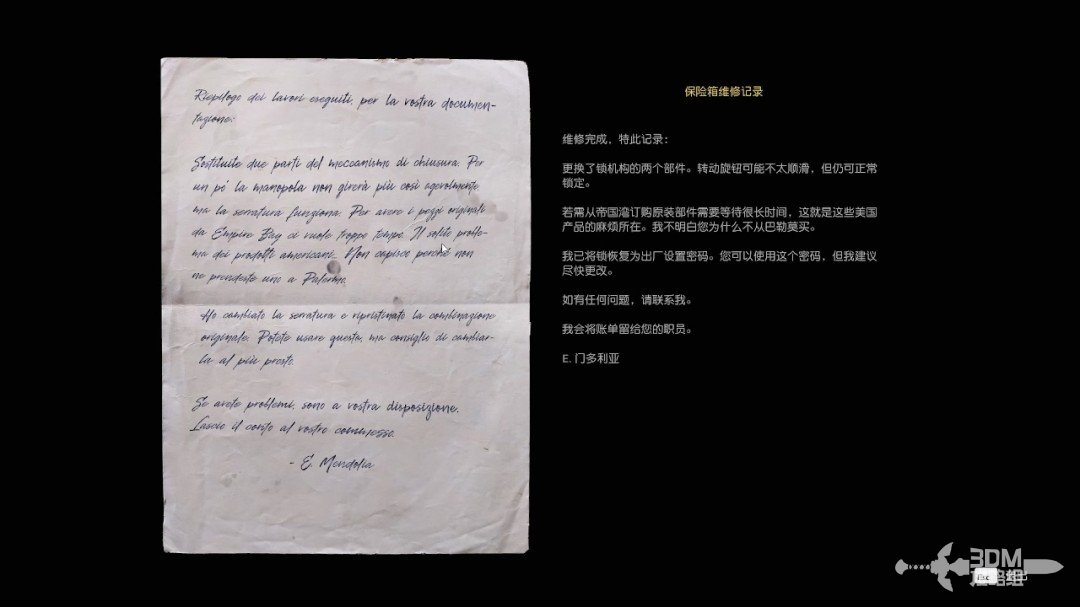 Riepilogo dei lavori eseguiti, per la vostra documen-
tazione:
Sostituite due parti del meccanismo di chiusura. Per
un po' la manopola non girerà più così agevolmente,
ma la serratura funziona. Per avere i pezzi originali
da Empire Bay ci vuole troppo tempo. Il solito proble-
ma dei prodotti americani... Non capisco perché non
ne prendeste uno a Palermo.
Ho cambiato la serratura e ripristinato la combinazione
originale. Potete usare questa, ma consiglio di cambiar-
la al più presto.
Se avete problemi, sono a vostra disposizione.
Lascio il conto al vostro commesso.
- E. Mendolia
保险箱维修记录
维修完成，特此记录：
更换了锁机构的两个部件。转动旋钮可能不太顺滑，但仍可正常
锁定。
若需从帝国湾订购原装部件需要等待很长时间，这就是这些美国
产品的麻烦所在。我不明白您为什么不从巴勒莫买。
我已将锁恢复为出厂设置密码。您可以使用这个密码，但我建议
尽快更改。
如有任何问题，请联系我。
我会将账单留给您的职员。
E. 门多利亚
3DM
Esc